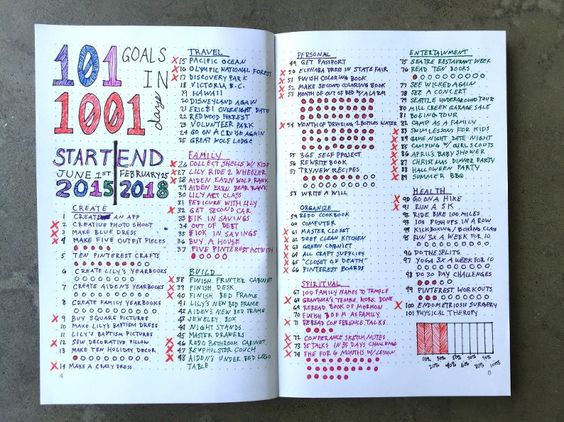 101 GOALS
IN
1001
days
START END
JUNE 1ST FEBRUARY 25
2015 2018
CREATE
1 CREATE AN APP
2 CREATIVE PHOTO SHOOT
3 MAKE BLUE DRESS
4 MAKE FIVE OUTFIT PIECES
5 TEN PINTEREST CRAFTS
6 CREATE LILY'S YEARBOOKS
7 CREATE AIDEN'S YEARBOOKS
8 CREATE FAMILY YEARBOOKS
9 BUY SQUARE PICTURES
10 MAKE LILY'S BAPTISM DRESS
11 LILY'S BAPTISM PICTURES
12 SEW DECORATIVE PILLOW
13 MAKE TEN HOLIDAY DECOR
14 MAKE A CRAZY DRESS
4
TRAVEL
15 PACIFIC OCEAN
16 OLYMPIC NATIONAL FOREST
17 DISCOVERY PARK
18 VICTORIA B.C.
19 HAWAII
20 DISNEYLAND AGAIN
21 ERIC & I OVERNIGHT DATE
22 REDWOOD FOREST
23 VOLUNTEER PARK
24 GO ON A CRUISE AGAIN
25 GREAT WOLF LODGE
FAMILY
26 COLLECT SHELLS W/ KIDS
27 LILY RIDE 2 WHEELER
28 AIDEN EARN WOLF RANK
29 AIDEN EARN BEAR RANK
30 LILY ART CLASS
31 PEDICURE WITH LILY
32 GET SECOND CAR
33 $1K IN SAVINGS
34 OUT OF DEBT
35 $10K IN SAVINGS
36 BUY A HOUSE
37 FIVE PINTEREST ACTIVITIES
BUILD
38 FINISH PRINTER CABINET
39 FINISH DESK
40 FINISH BED FRAME
41 LILY'S NEW BED FRAME
42 AIDEN'S NEW BED FRAME
43 JEWELRY BOX
44 NIGHT STANDS
45 MASTER DRAWERS
46 REDO BATHROOM CABINET
47 REUPHOLSTER COUCH
48 AIDEN'S UNDER BED LEGO
TABLE
PERSONAL
49 GET PASSPORT
50 ENTER IN STATE FAIR
51 FINISH COLORING BOOK
52 MAKE SECOND COLORING BOOK
53 MONTH OF OUT OF BED W/ALARM
54 MONTH OF DRINKING 2 BOTTLES WATER
55 SELF PROJECT
56 REWRITE BOOK
57 TRY NEW RECIPES
58 WRITE A WILL
ORGANIZE
59 REDO COOKBOOK
60 COMPUTER
61 MASTER CLOSET
62 DEEP CLEAN KITCHEN
63 GREEN CABINET
64 ALL CRAFT SUPPLIES
65 "CLOSET OF DEATH"
66 PINTEREST BOARDS
SPIRITUAL
67 100 FAMILY NAMES TO TEMPLE
68 GRANDMA'S TEMPLE WORK DONE
69 READ BOOK OF MORMON
70 FINISH B.O.M AS FAMILY
71 REREAD CONFERENCE TALKS
72 CONFERENCE SKETCH NOTES
73 35 TALKS IN 35 DAYS CHALLENGE
74 THE FOR 6 MONTHS W/LESSON
ENTERTAINMENT
75 SEATTLE RESTAURANT WEEK
76 READ TEN BOOKS
77 SEE WICKED AGAIN
78 SEE A CONCERT
79 SEATTLE UNDERGROUND TOUR
80 MILL CREEK GARAGE SALE
81 BOEING TOUR
82 CAMP AS A FAMILY
83 SWIM LESSONS FOR KIDS
84 GAME NIGHT DATE NIGHT
85 CAMPING W/ GIRL SCOUTS
86 APRIL'S BABY SHOWER
87 CHRISTMAS DINNER PARTY
88 HALLOWEEN PARTY
89 SUMMER BBQ
HEALTH
90 GO ON A HIKE
91 RUN A 5K
92 RIDE BIKE 100 MILES
93 10 PUSHUPS IN A ROW
94 KICKBOXING/ CLASS
95 RUN 3X A WEEK FOR 10
96 DO THE SPLITS
97 YOGA 3X A WEEK FOR 10
98 DO 30 DAY CHALLENGES
99 PINTEREST WORKOUTS
100 ENDOMETRIOSIS SURGERY
101 PHYSICAL THERAPY